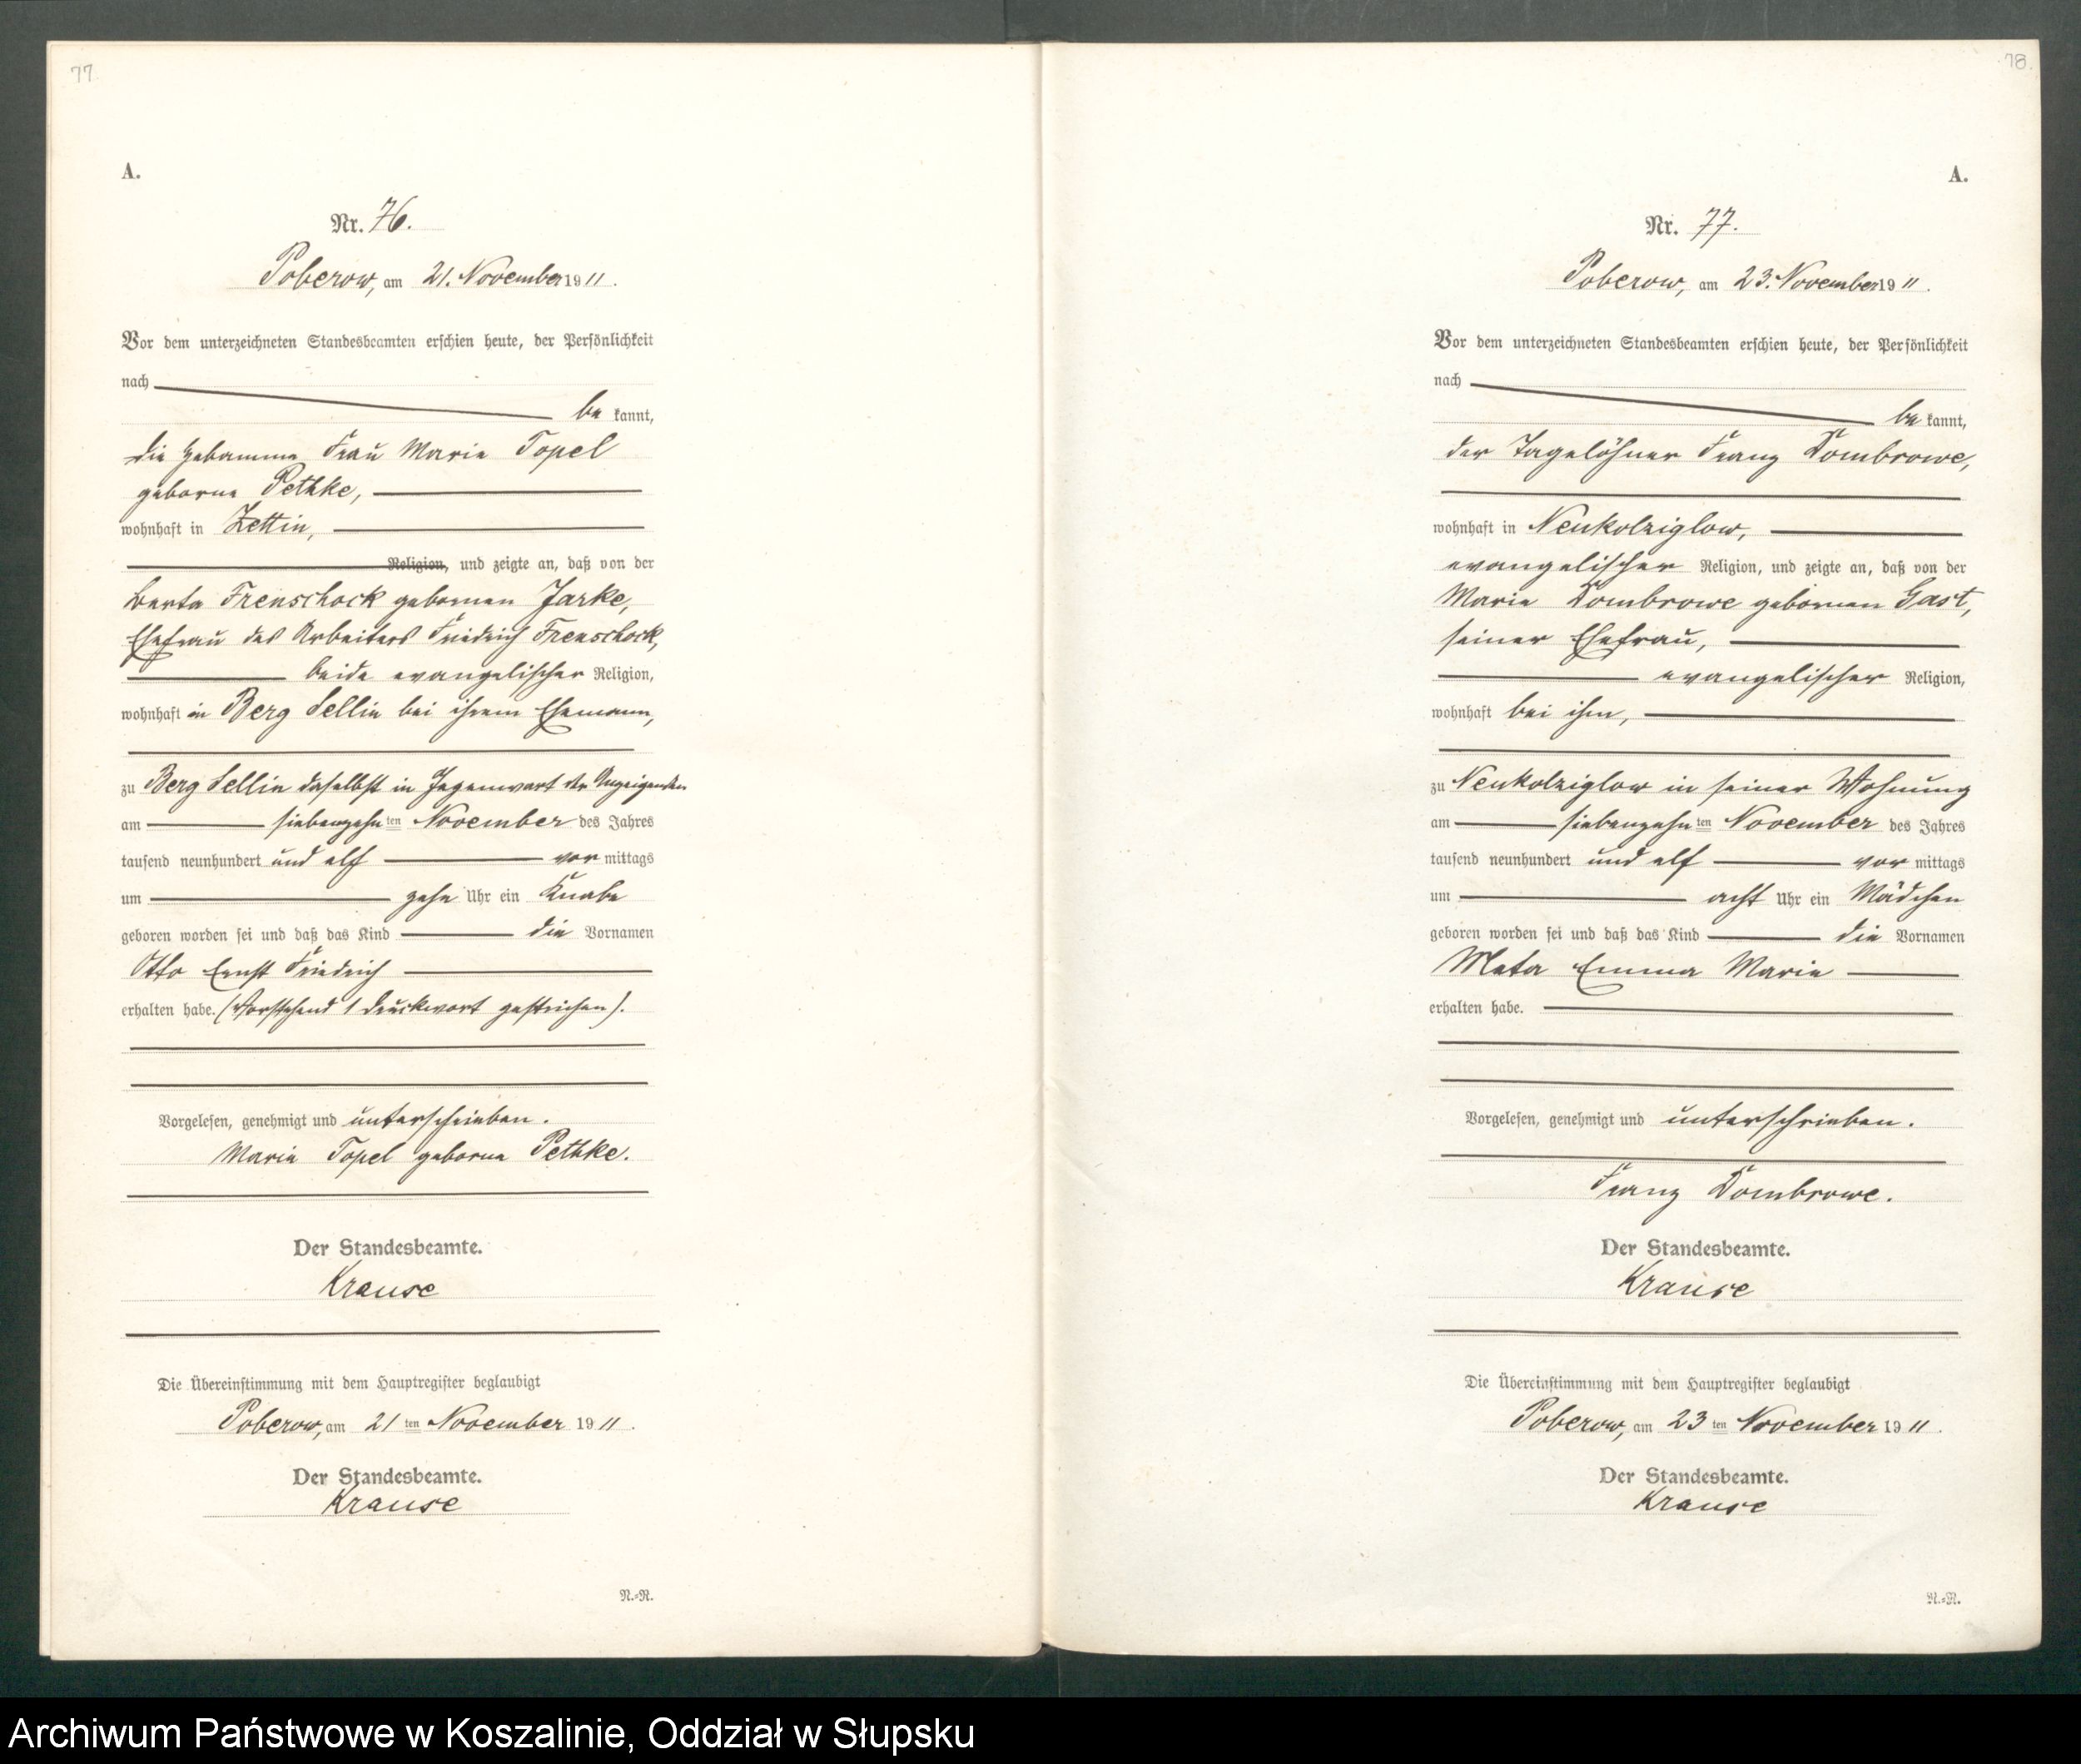 77
A.
Nr. 76.
Poberow, am 21. November 1911.
Vor dem unterzeichneten Standesbeamten erschien heute, der Persönlichkeit
nach
be kannt,
die Hebamme Frau Marie Topel
geborne Pethke,
wohnhaft in Zettin,
Religion, und zeigte an, daß von der
Berta Frenschock gebornen Jarke,
Ehefrau des Arbeiters Friedrich Frenschock,
beide evangelischer Religion,
wohnhaft in Berg Sellin bei ihrem Ehemann,
zu Berg Sellin daselbst in Gegenwart der Anzeigenden
am siebenzehnten November des Jahres
tausend neunhundert und elf vormittags
um zehn Uhr ein Knabe
geboren worden sei und daß das Kind die Vornamen
Otto Ernst Friedrich
erhalten habe. (Vorstehend 1 Druckwort gestrichen).
Vorgelesen, genehmigt und unterschrieben.
Marie Topel geborne Pethke.
Der Standesbeamte.
Krause
Die Übereinstimmung mit dem Hauptregister beglaubigt
Poberow, am 21ten November 1911.
Der Standesbeamte.
Krause
N.=R.
78.
A.
Nr. 77.
Poberow, am 23. November 1911.
Vor dem unterzeichneten Standesbeamten erschien heute, der Persönlichkeit
nach
be kannt,
der Tagelöhner Franz Dombrowe,
wohnhaft in Neukolziglow,
evangelischer Religion, und zeigte an, daß von der
Marie Dombrowe gebornen Gast,
seiner Ehefrau,
evangelischer Religion,
wohnhaft bei ihm,
zu Neukolziglow in seiner Wohnung
am siebenzehnten November des Jahres
tausend neunhundert und elf vormittags
um acht Uhr ein Mädchen
geboren worden sei und daß das Kind die Vornamen
Meta Emma Marie
erhalten habe.
Vorgelesen, genehmigt und unterschrieben.
Franz Dombrowe.
Der Standesbeamte.
Krause
Die Übereinstimmung mit dem Hauptregister beglaubigt
Poberow, am 23ten November 1911.
Der Standesbeamte.
Krause
N.=R.
Archiwum Państwowe w Koszalinie, Oddział w Słupsku